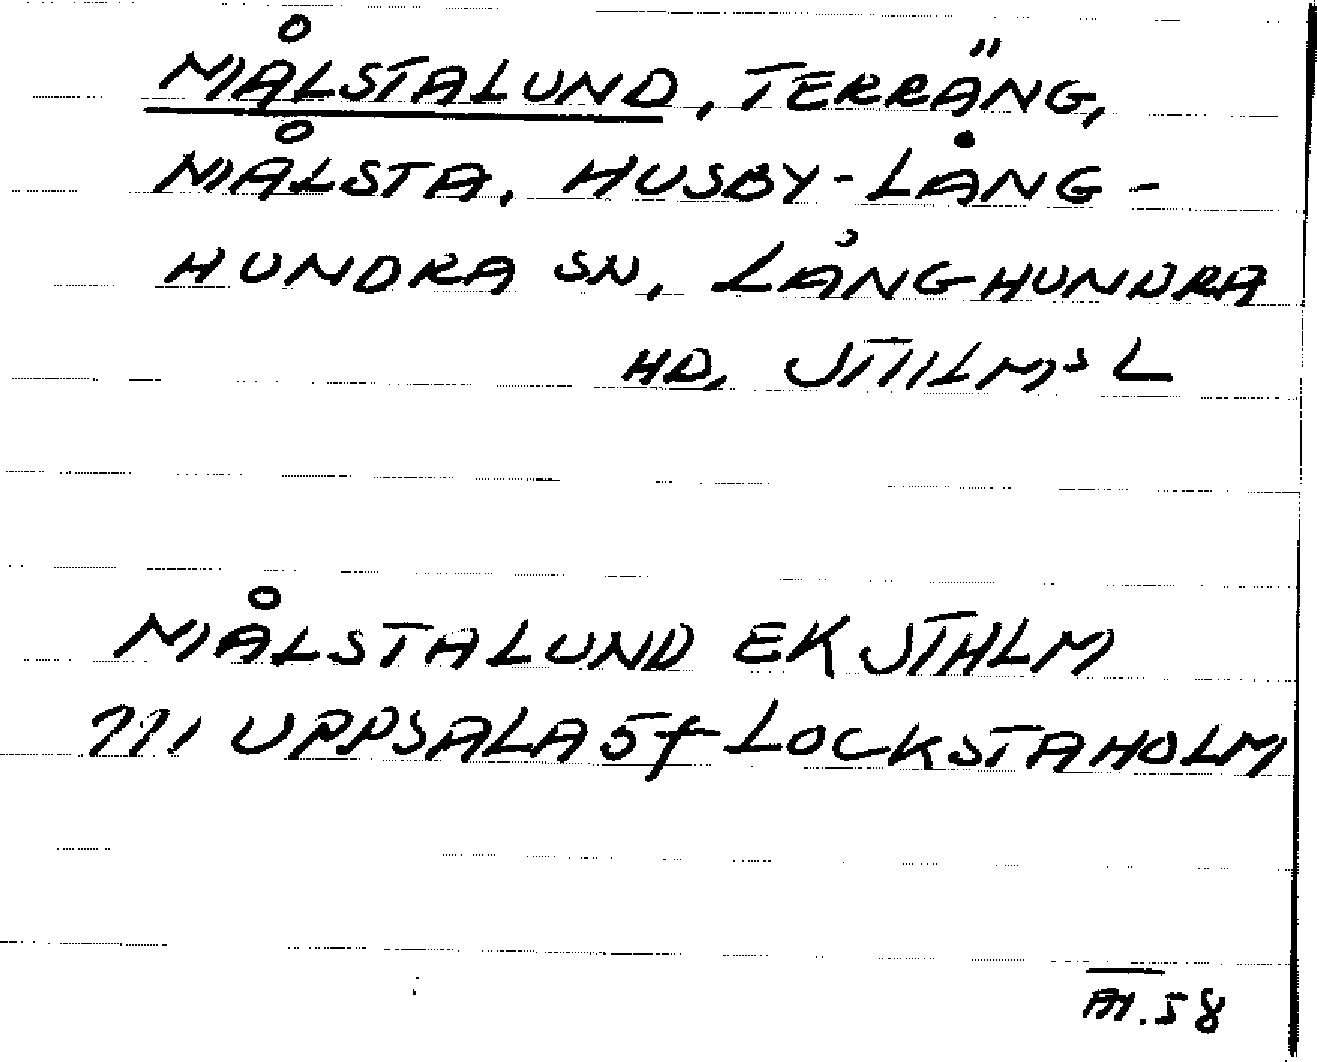 MÅLSTALUND, TERRÄNG,
MÅLSTA, HUSBY-LÅNG-
HUNDRA SN, LÅNGHUNDRA
HD, STHLMS L
MÅLSTALUND EK STHLM
111 UPPSALA 5f LOCKSTAHOLM
58